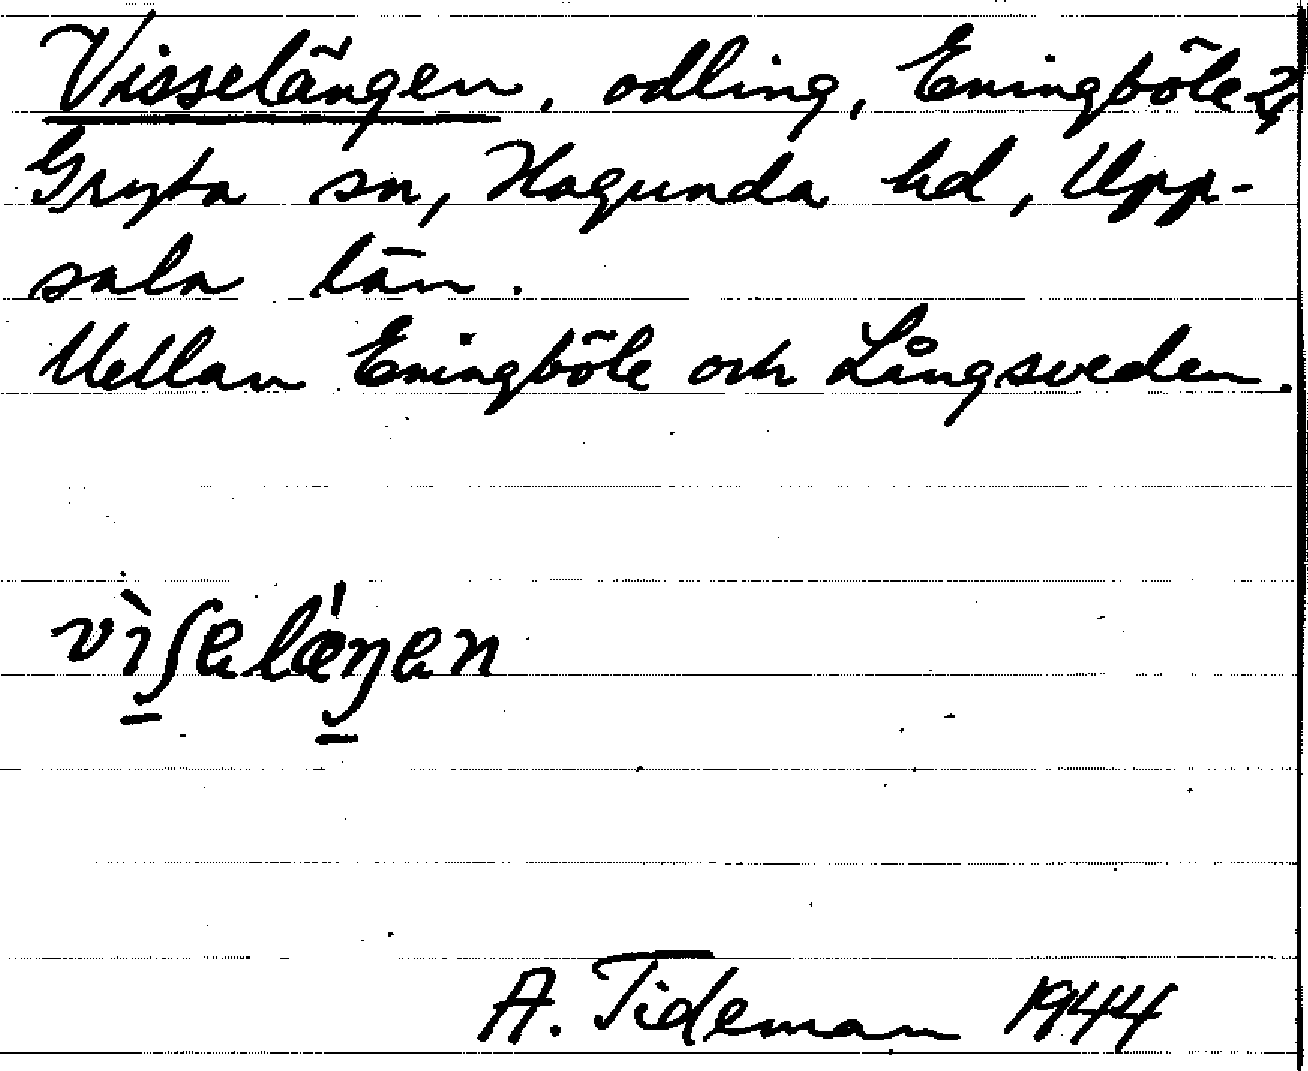 Visselängen, odling, Eningböle 2,
Gryta sn, Hagunda hd, Upp-
sala län.
Mellan Eningböle och Långsveden.
vìʃelǽŋen
A. Tideman 1944